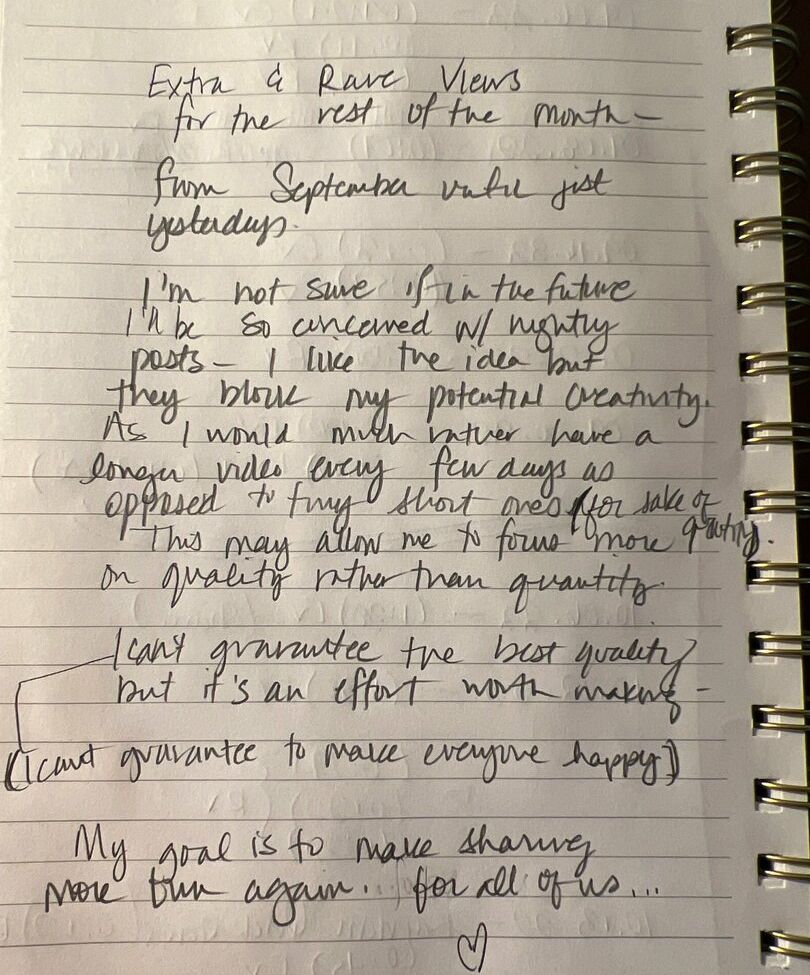 Extra & Rare Views
for the rest of the month –
from September until just
yesterday.
I'm not sure if in the future
I'll be so concerned w/ nightly
posts – I like the idea but
they block my potential creativity.
As I would much rather have a
longer video every few days as
opposed to tiny short ones for sake of
This may allow me to focus more
on quality rather than quantity.
I can't guarantee the best quality
but it's an effort worth making –
(I can't guarantee to make everyone happy)
My goal is to make sharing
more fun again.. for all of us...
♡